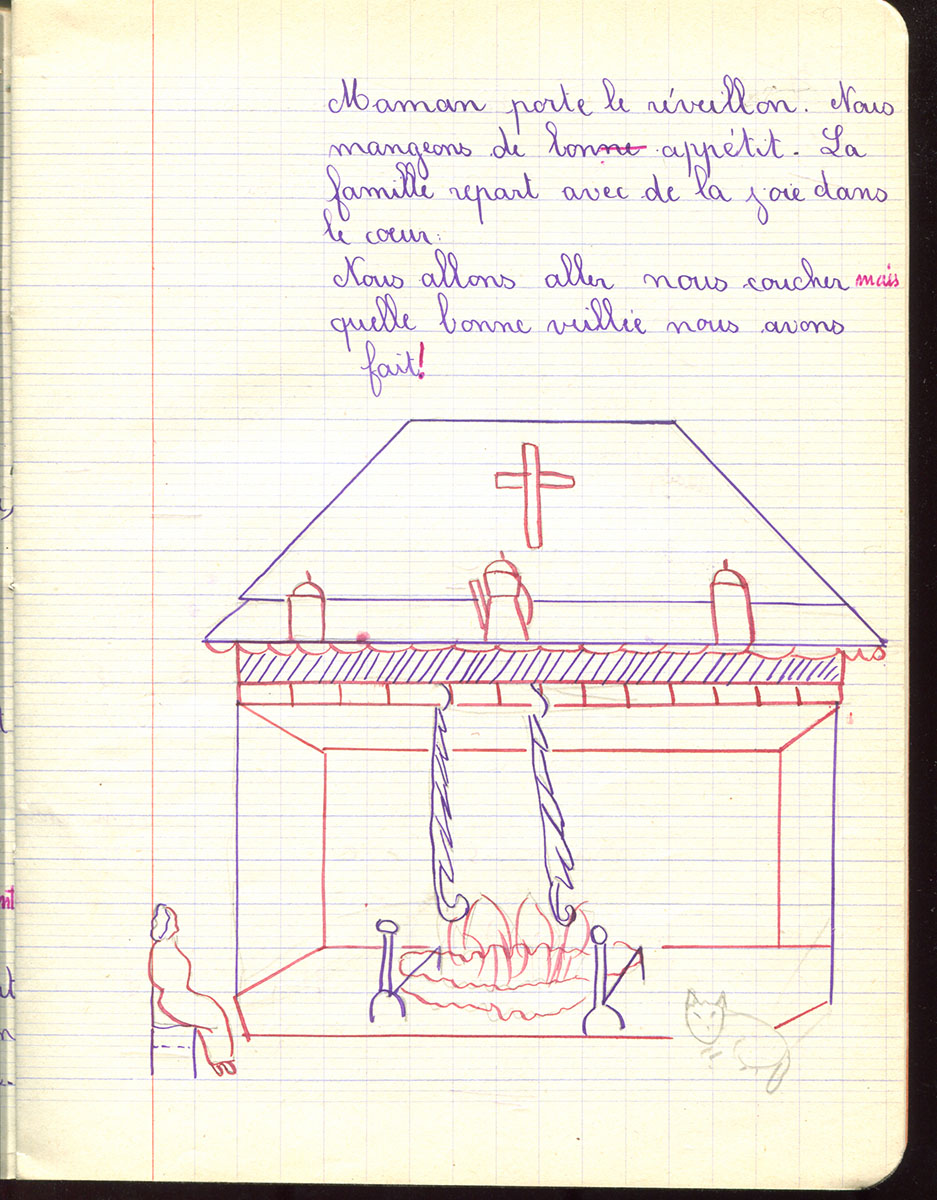 Maman porte le réveillon. Nous
mangeons de bonne appétit. La
famille repart avec de la joie dans
le cœur.
Nous allons aller nous coucher mais
quelle bonne veillée nous avons
fait!
nt